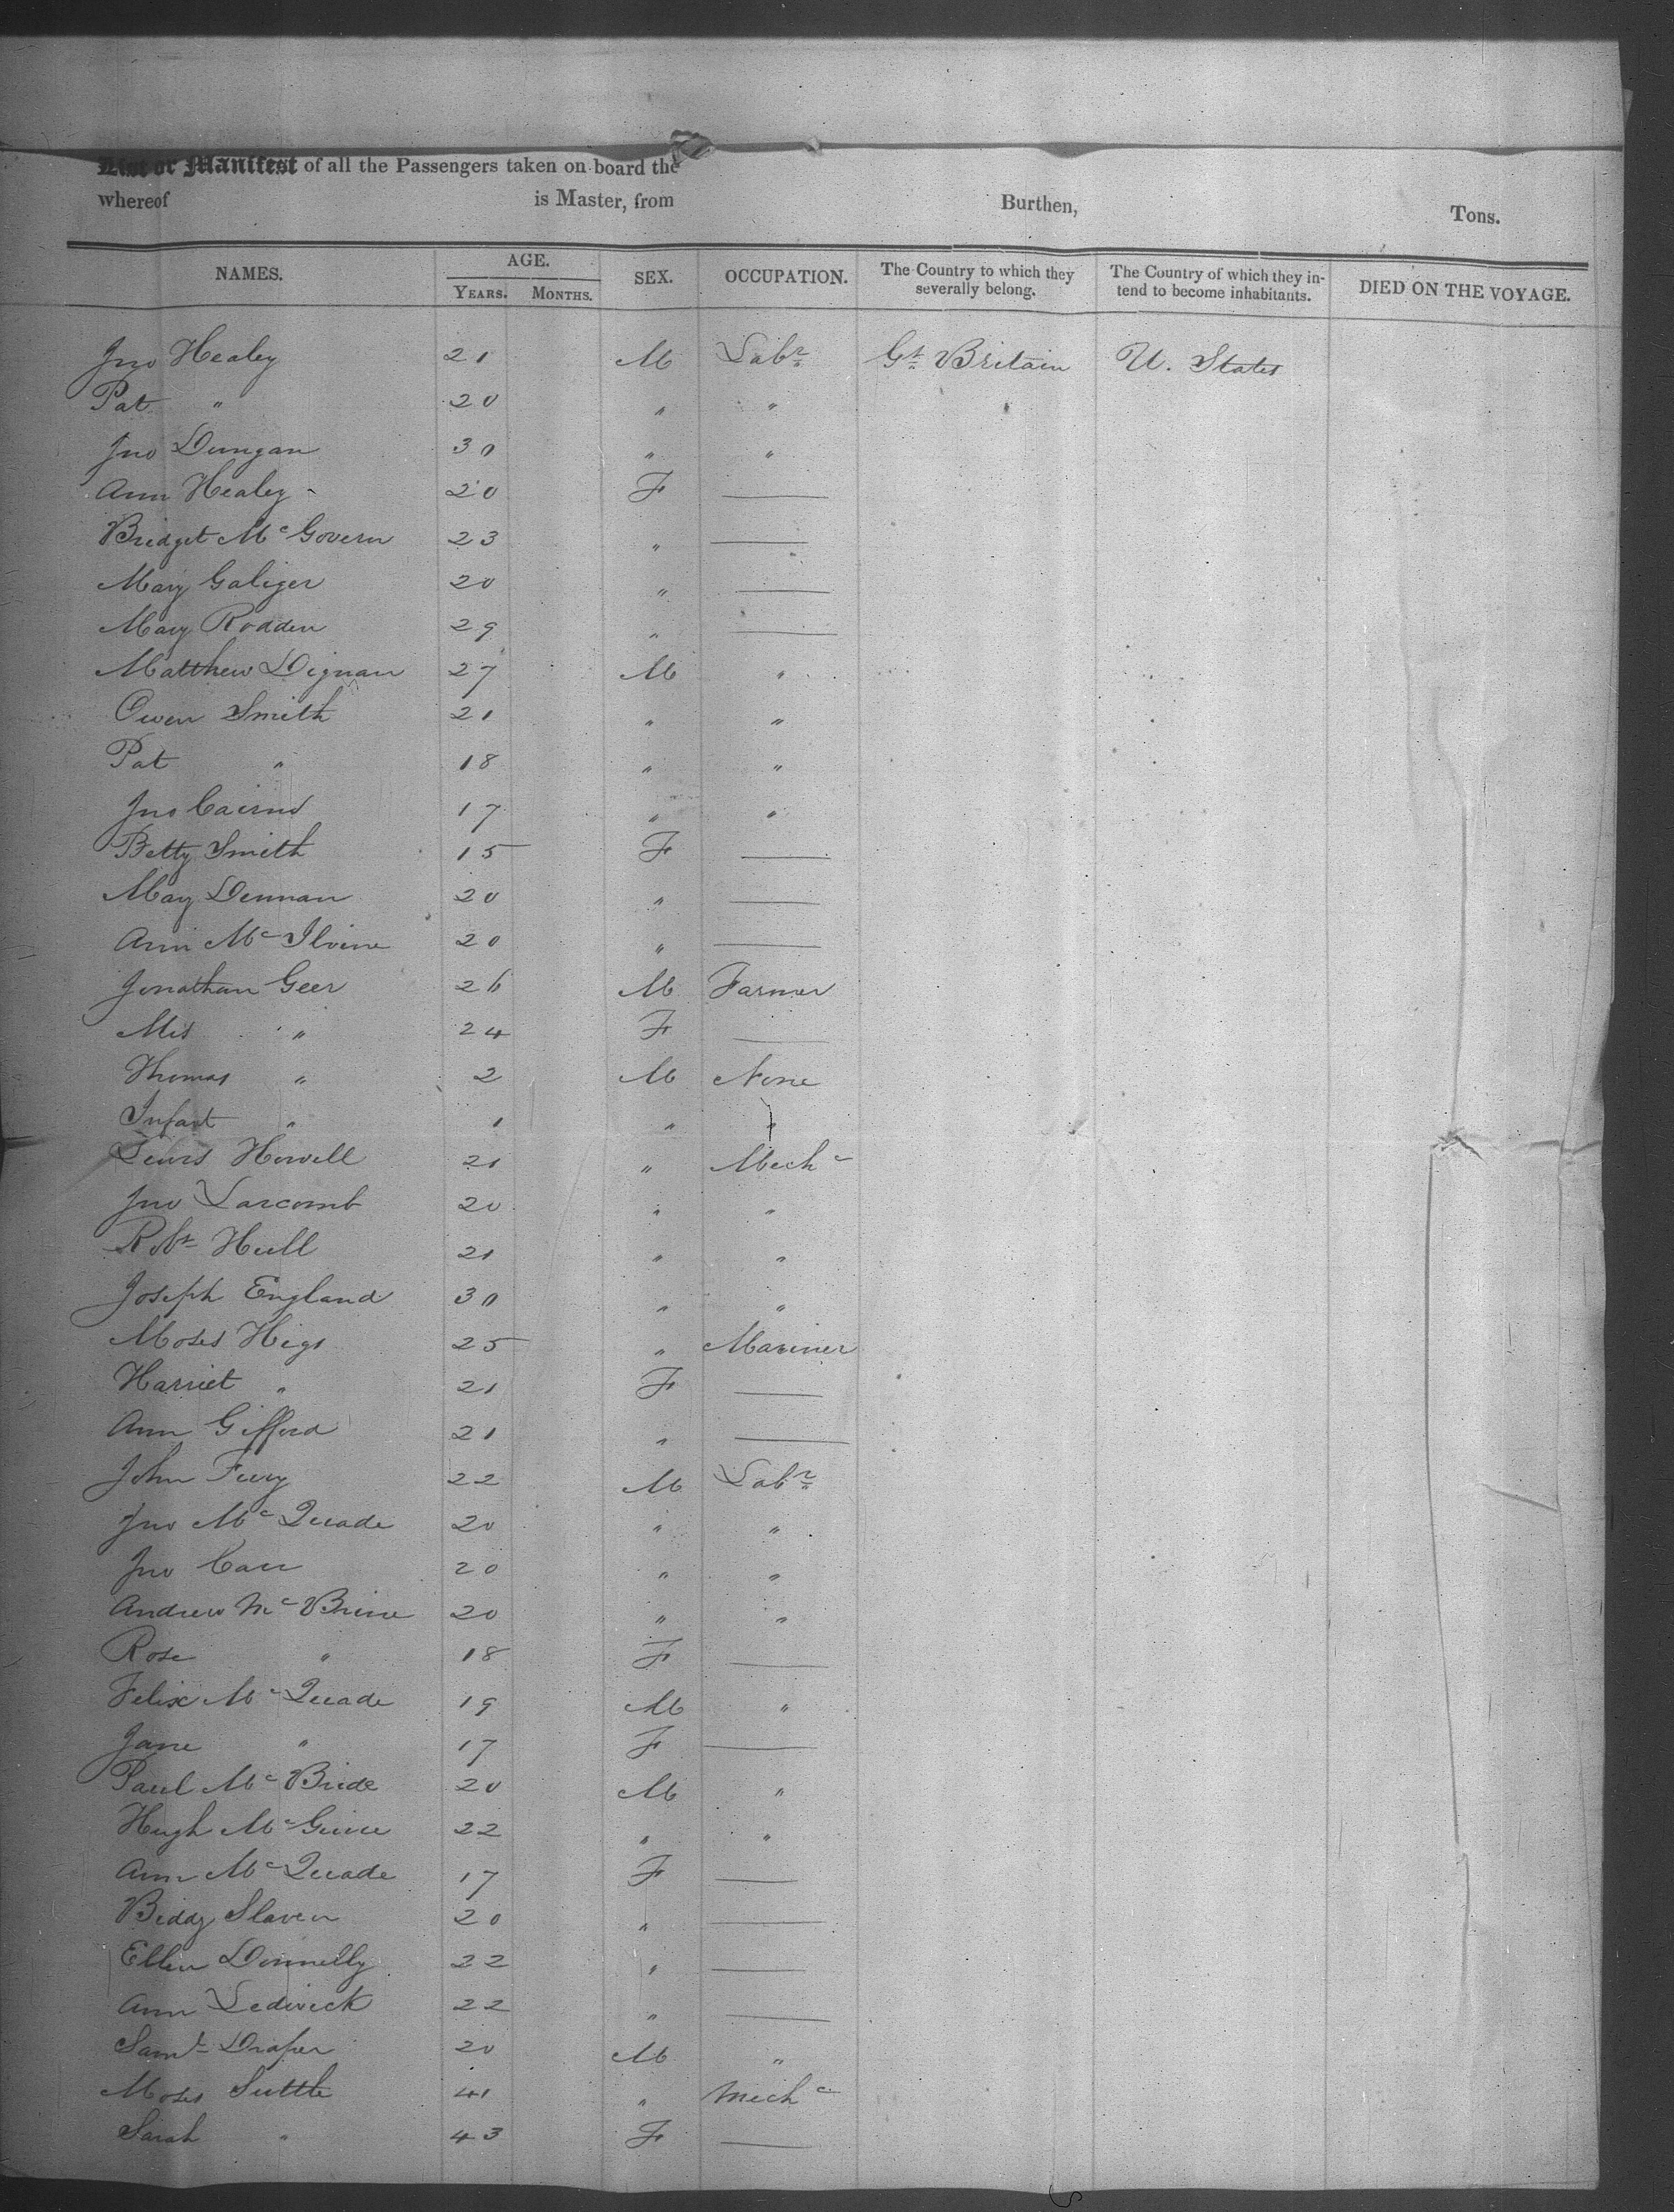 List or Manifest of all the Passengers taken on board the
whereof is Master, from Burthen, Tons.
NAMES. AGE. SEX. OCCUPATION. The Country to which they severally belong. The Country of which they in-tend to become inhabitants. DIED ON THE VOYAGE.
YEARS. MONTHS.
Jno Healey 21 M Labr Gt Britain U. States
Pat " 20 " "
Jno Dungan 30 " "
Ann Healey 20 F —
Bridget McGovern 23 " —
Mary Galiger 20 " —
Mary Rodden 29 " —
Matthew Dignan 27 M "
Owen Smith 21 " "
Pat " 18 " "
Jno Cairns 17 " "
Betty Smith 15 F —
May Dennan 20 " —
Ann McIlvine 20 " —
Jonathan Geer 26 M Farmer
Mrs " 24 F —
Thomas " 2 M None
Infant " 1 " "
Lewis Howell 21 " Mechc
Jno Larcomb 20 " "
Robt Hull 21 " "
Joseph England 30 " "
Moses Higs 25 " Mariner
Harriet " 21 F —
Ann Gifford 21 " —
John Fury 22 M Labr
Jno McQuade 20 " "
Jno Carr 20 " "
Andrew McBrine 20 " "
Rose " 18 F —
Felix McQuade 19 M "
Jane " 17 F —
Paul McBride 20 M "
Hugh McGuire 22 " "
Ann McQuade 17 F —
Biddy Slaven 20 " —
Ellen Donnelly 22 " —
Ann Ledwick 22 " —
Saml Draper 20 M "
Moses Suttle 41 " Mechc
Sarah " 43 F —